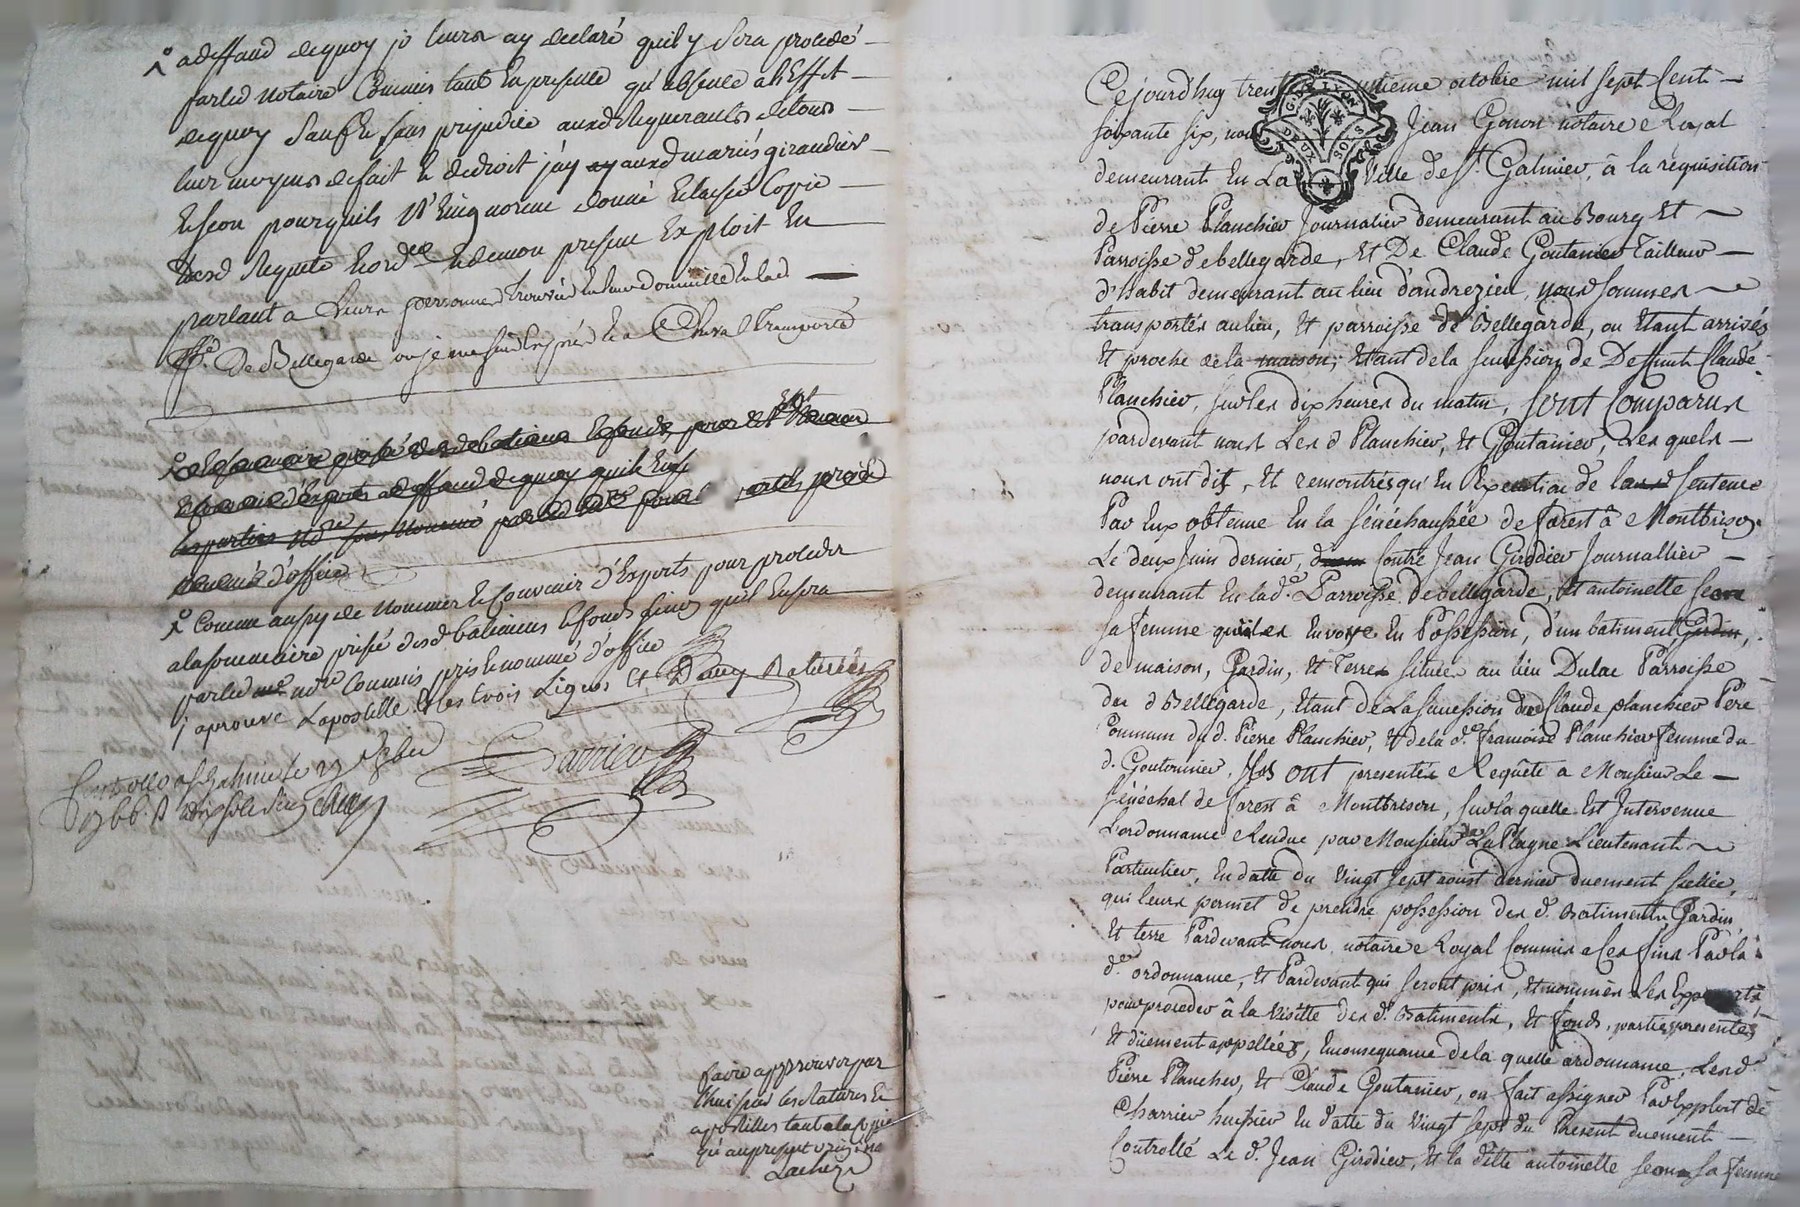 adeffaud dequoy je leurs ay declaré quil y sera procedé
parled notaire Commis tant En presence qu'absence a l'Effet
dequoy Sauf Et sans prejudice auxd Requerants detous
leur moyens de fait Et de droit j'ay auxd mariés giraudier
pourquils N'En ignorent donné Et laissé Copie
desd Requete hord.ce Et demon present Exploit En
parlant a Leurs personnes trouvés En leur domicille En lad
De Bellegarde ou je me suis Exprés Et a Cheval transporté
Comme aussy de Nommer Et Convenir d'Experts pour proceder
alasommaire prisée desd batiments Et fonds sinon qu'il En sera
parled notre Commis pris Et nommé d'office
j'aprouve Lapostille Et les trois Lignes Et Demy Raturées
Charrier
Controllé a St Galmier le 29
faire approuver par
l'huissier les Ratures Et
apostilles tant alacopie
qu'au present original
Lachez
G. DE LYON
DEUX SOLS
Cejourd'huy trente unieme octobre mil sept Cent
soixante six, nous Jean Gonon notaire Royal
demeurant En La Ville de St. Galmier, à la requisition
de Pierre Planchier Journalier demeurant au Bourg Et
Parroisse de bellegarde, Et De Claude Goutanier Tailleur
d'habit demeurant au lieu d'andrezieu, nous sommes
transportés au lieu, Et parroisse de Bellegarde, ou Etant arrivés
Et proche de la maison, Etant de la succession de Deffunt Claude
Planchier, sur les dix heures du matin, sont Comparus
pardevant nous Les d Planchier, Et Goutanier, Les quels
nous ont dit, Et remontrés qu'En Execution de la Sentence
Par Eux obtenue En la sénéchaussée de forest à Montbrison
Le deux Juin dernier, Contre Jean Girodier Journallier
demeurant En lad.e Parroisse De bellegarde, Et antoinette
sa femme qui les Envoye En Possession, d'un batiment
de maison, Jardin, Et Terres situés au lieu Dulac Parroisse
du d Bellegarde, Etant de La succession de Claude planchier Pere
Commun du d. Pierre Planchier, Et de la d.e francoise Planchier femme du
d. Goutannier, Ils ont presentés Requête a Monsieur Le
sénéchal de forest à Montbrison, sur la quelle Est Intervenue
L'ordonnance Rendue par Monsieur de La Plagne Lieutenant
Particulier, En datte du Vingt sept aoust dernier duement scellée,
qui leurs permet de prendre possession des d. Batiments Jardin
Et terre Pardevant nous notaire Royal Commis a Ces fins Par la
d.e ordonnance, Et Pardevant qui seront pris, Et nommés Les Experts
pour proceder à la Visitte des d. Batiments, Et fonds, parties presentes
Et düement appellées, En consequence de la quelle ordonnance, Les d
Pierre Planchier, Et Claude Goutanier, on fait assigner Par Exploit de
Charrier huissier En datte du Vingt sept du Present duement
Controllé Le d. Jean Girodier, Et la ditte antoinette sa femme